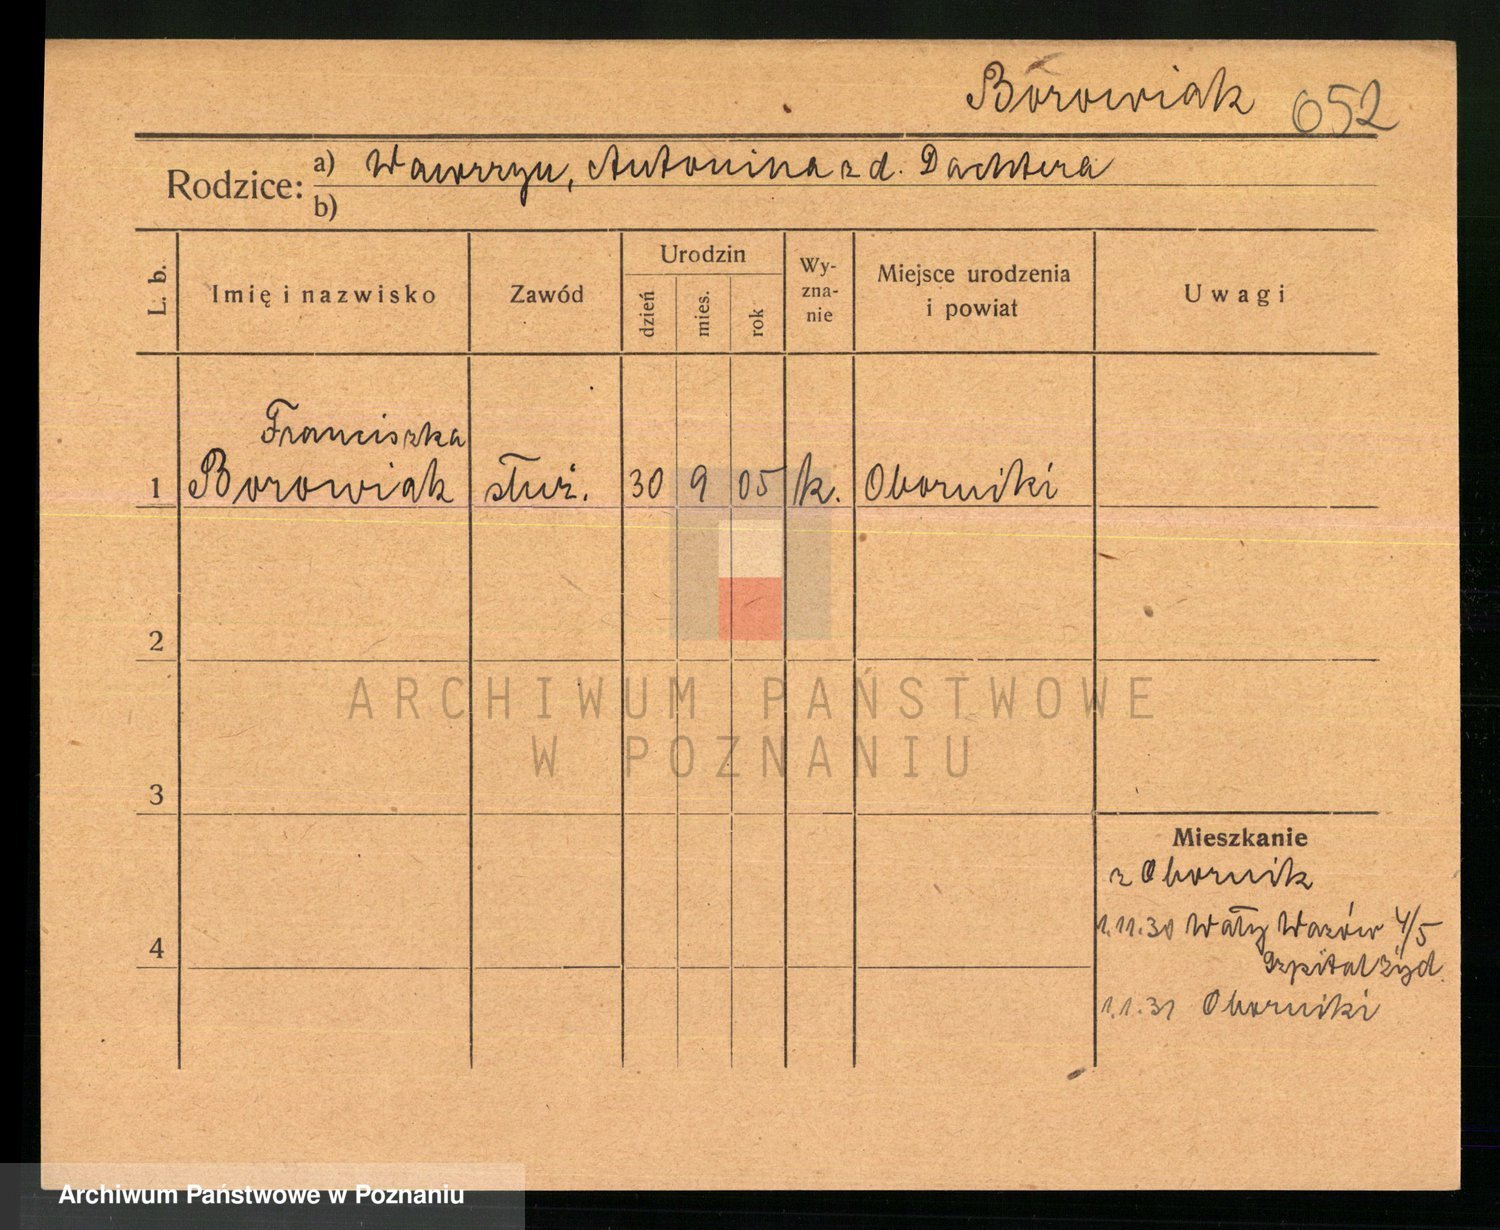 Borowiak 652
Rodzice: a) Wawrzyn, Antonina z d. Dachtera
b)
L. b.
Imię i nazwisko
Zawód
Urodzin
dzień
mies.
rok
Wy-
zna-
nie
Miejsce urodzenia
i powiat
Uwagi
Franciszka
1 Borowiak służ. 30 9 05 k. Oborniki
2
3
4
Mieszkanie
z Obornik
1.11.30 Wały Wazów 4/5
Szpital Żyd.
1.1.31 Oborniki
ARCHIWUM PAŃSTWOWE
W POZNANIU
Archiwum Państwowe w Poznaniu